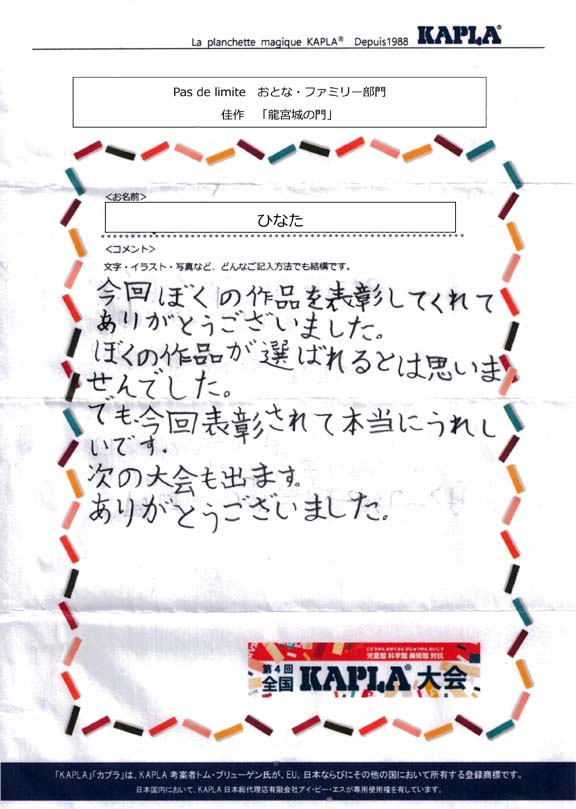 La planchette magique KAPLA® Depuis1988 KAPLA®
Pas de limite おとな・ファミリー部門
佳作 「龍宮城の門」
<お名前>
ひなた
<コメント>
文字・イラスト・写真など、どんなご記入方法でも結構です。
今回ぼくの作品を表彰してくれて
ありがとうございました。
ぼくの作品が選ばれるとは思いま
せんでした。
でも、今回表彰されて本当にうれし
いです。
次の大会も出ます。
ありがとうございました。
こどうかん かがくかん びじゅつかん たいこう
児童館 科学館 美術館 対抗
第4回
全国 KAPLA® 大会
「KAPLA」「カプラ」は、KAPLA 考案者トム・ブリューゲン氏が、EU、日本ならびにその他の国において所有する登録商標です。
日本国内において、KAPLA 日本総代理店有限会社アイ・ピー・エスが専用使用権を有しています。